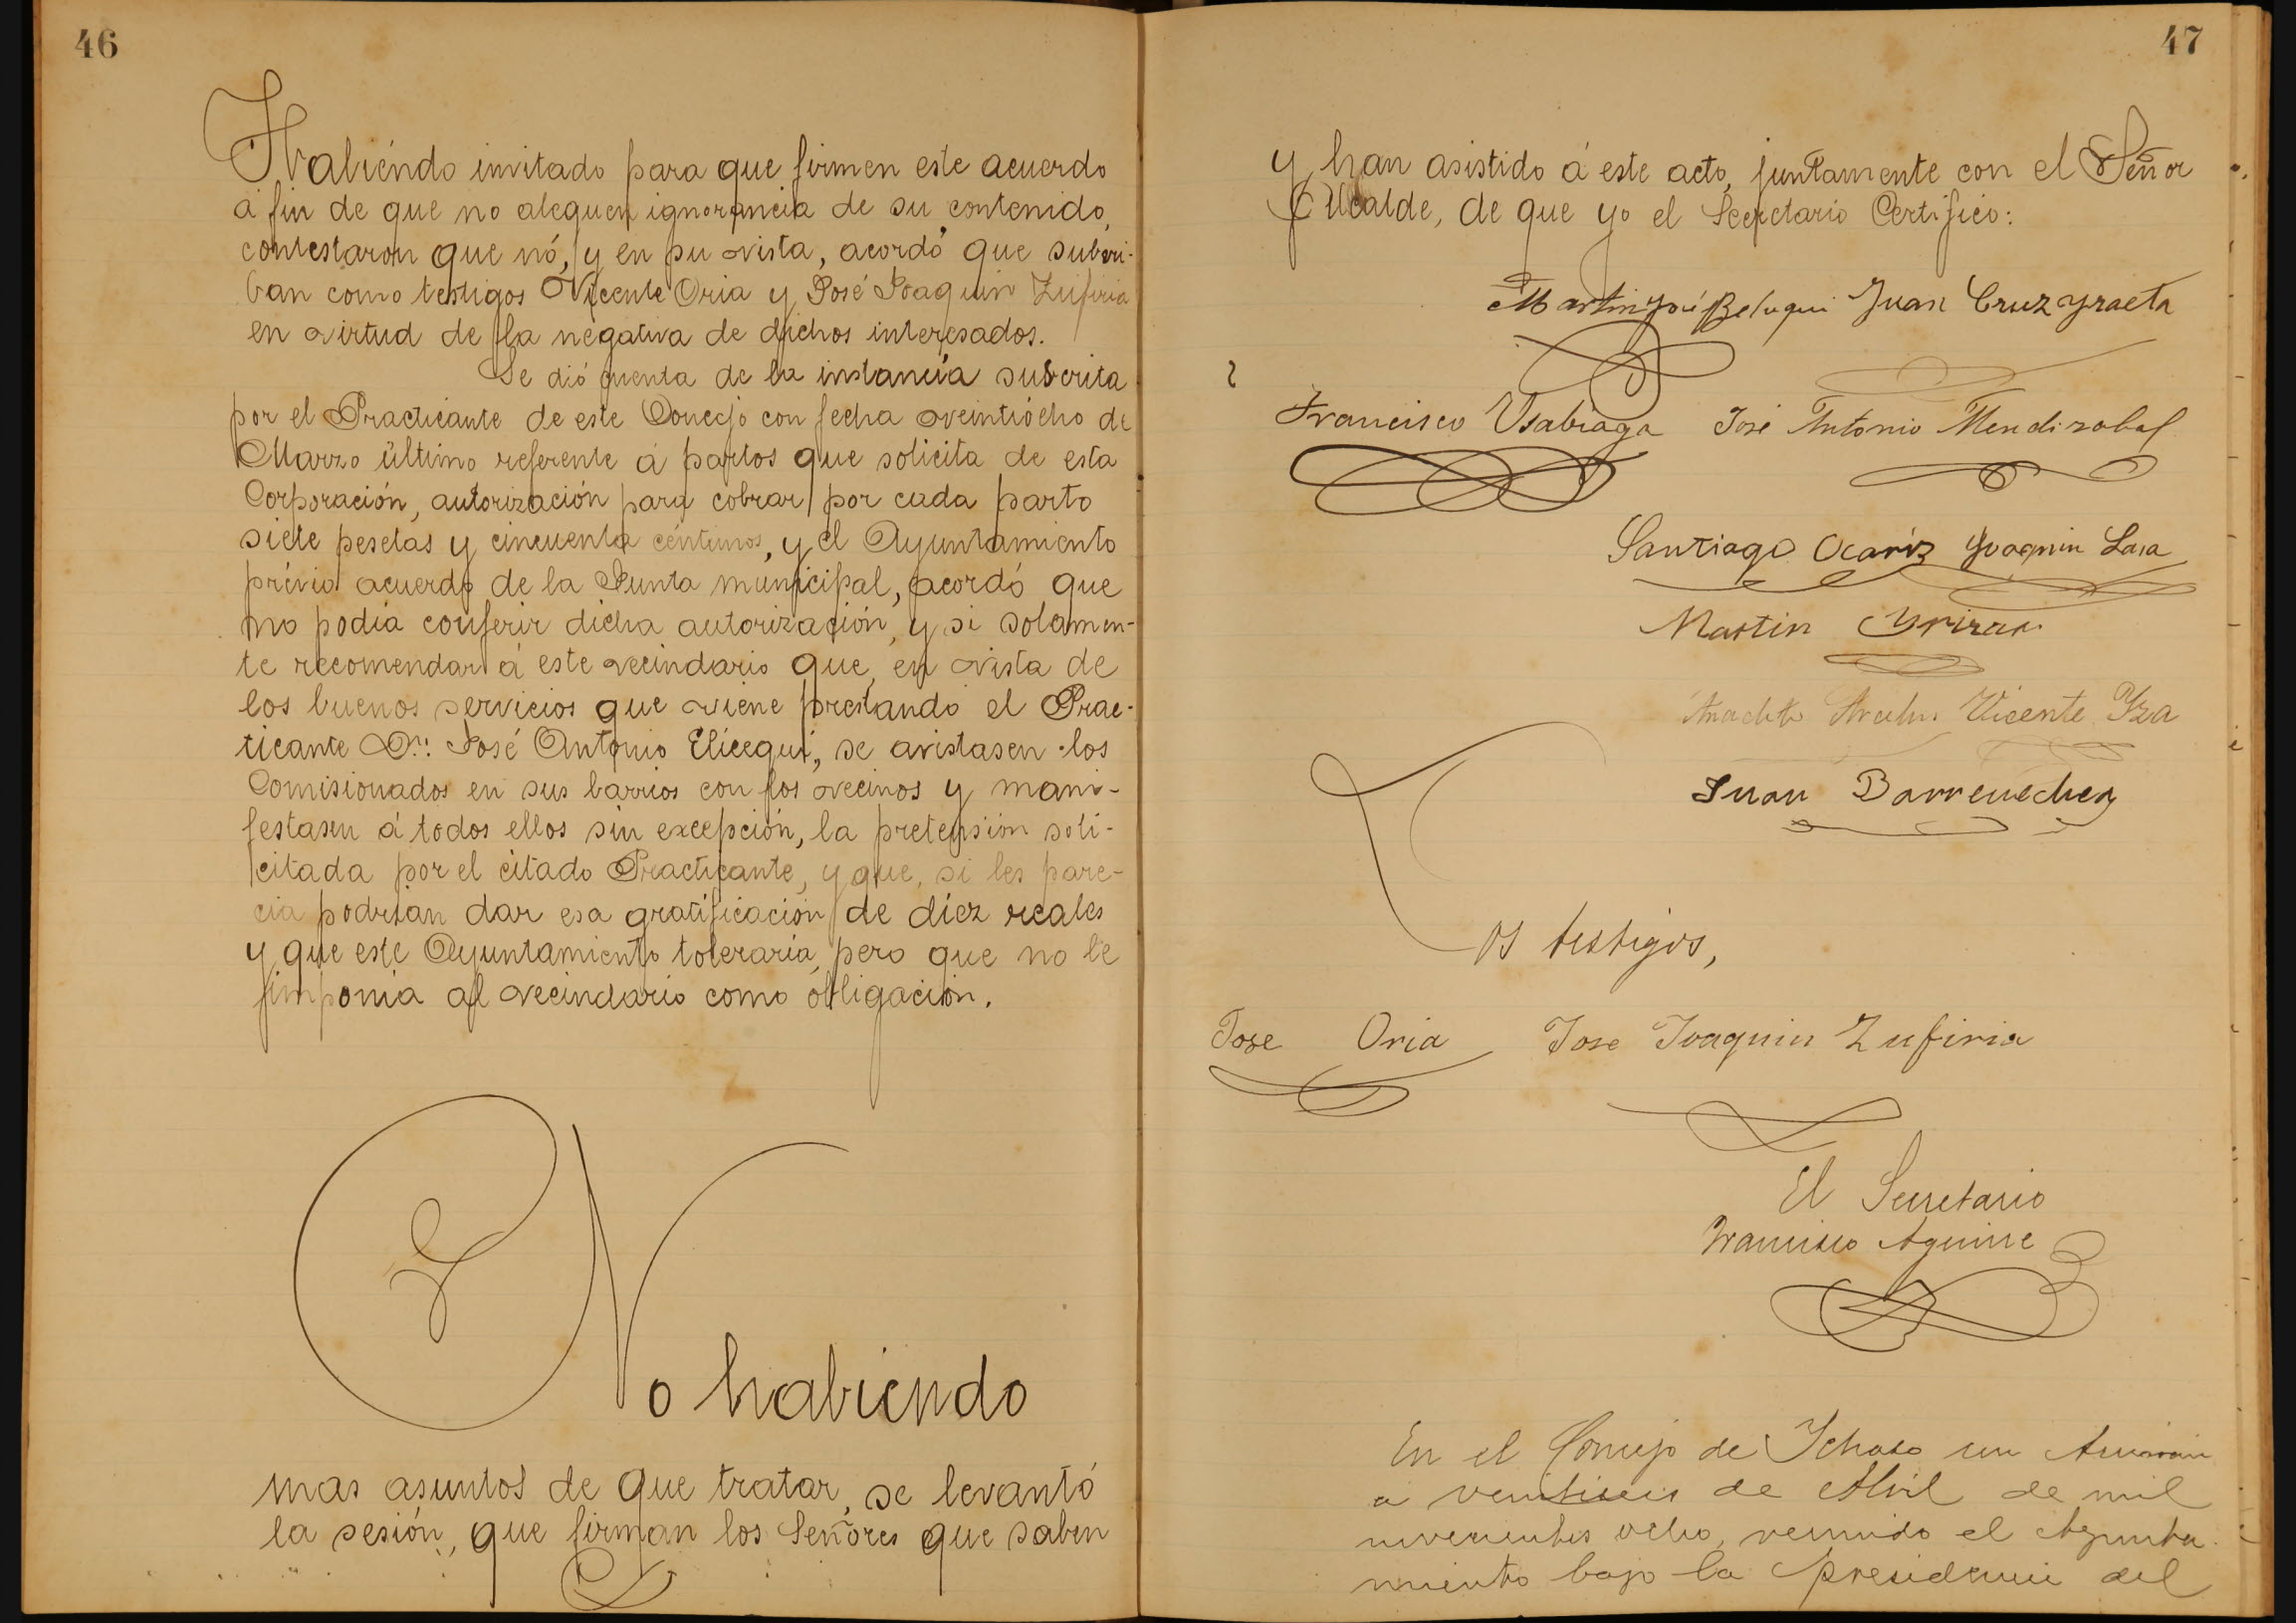 46
Habiéndo invitado para que firmen este acuerdo
á fin de que no aleguen ignorancia de su contenido,
contestaron que nó, y en su vista, acordó que suscri-
ban como testigos Vicente Oria y José Joaquin Zufiria
en virtud de la negativa de dichos interesados.
Se dió cuenta de la instancia suscrita
por el Practicante de este Concejo con fecha veintiocho de
Marzo último referente á partos que solicita de esta
Corporación, autorización para cobrar por cada parto
siete pesetas y cincuenta céntimos, y el Ayuntamiento
prévio acuerdo de la Junta municipal, acordó que
no podia conferir dicha autorización, y si solamen-
te recomendar á este vecindario que, en vista de
los buenos servicios que viene prestando el Prac-
ticante Dn. José Antonio Elicegui, se avistasen los
Comisionados en sus barrios con los vecinos y mani-
festasen á todos ellos sin excepción, la pretensión soli-
citada por el citado Practicante, y que, si les pare-
cia podrian dar esa gratificación de diez reales
y que este Ayuntamiento toleraria, pero que no le
imponia al vecindario como obligación.
No habiendo
mas asuntos de que tratar, se levantó
la sesión, que firman los Señores que saben
47
y han asistido á este acto, juntamente con el Señor
Alcalde, de que yo el Secretario Certifico:
Martin José Beloqui Juan Cruz Yraeta
Francisco Usabiaga José Antonio Mendizabal
Santiago Ocariz Joaquin Lasa
Martin Yrizar
Vicente Yza
Juan Barrenechea
Los testigos,
Jose Oria Jose Joaquin Zufiria
El Secretario
Francisco Aguirre
En el Concejo de Ichaso en
a veintiseis de Abril de mil
novecientos ocho, reunido el Ayunta-
miento bajo la presidencia del